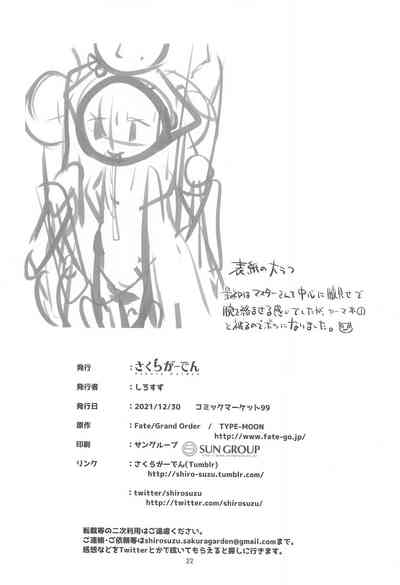 表紙の大ラフ
最初はマスターさんも中心に顔見せて
腕を絡ませる感じでしたが、
となりました。
発行 ：さくらがーでん
発行者 ：しろすず
発行日 ：2021/12/30　コミックマーケット99
原作 ：Fate/Grand Order / TYPE-MOON
http://www.fate-go.jp/
印刷 ：サングループ SUN GROUP
リンク ：さくらがーでん(Tumblr)
http://shiro-suzu.tumblr.com/
：twitter/shirosuzu
http://twitter.com/shirosuzu/
転載等の二次利用はご遠慮ください。
ご連絡・ご依頼等はshirosuzu.sakuragarden@gmail.comまで。
感想などをTwitterとかで呟いてもらえると探しに行きます。
22